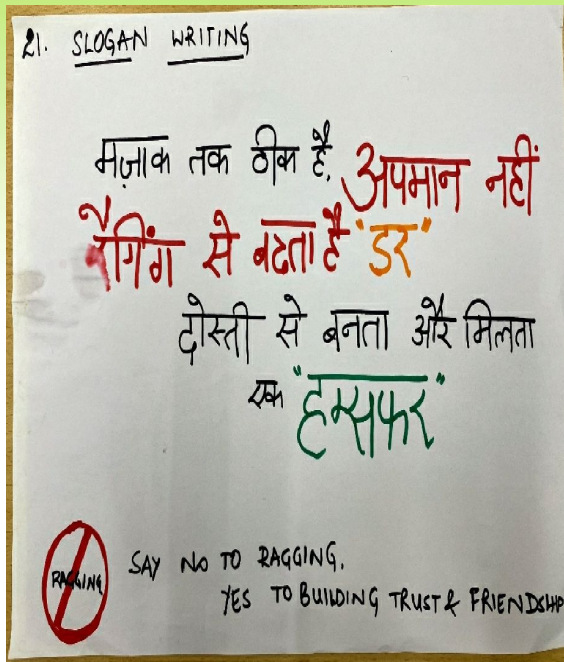 21. SLOGAN WRITING
मज़ाक तक ठीक है, अपमान नहीं
रैगिंग से बढता है "डर"
दोस्ती से बनता और मिलता
एक "हम्सफर"
RAGGING
SAY NO TO RAGGING,
YES TO BUILDING TRUST & FRIENDSHIP